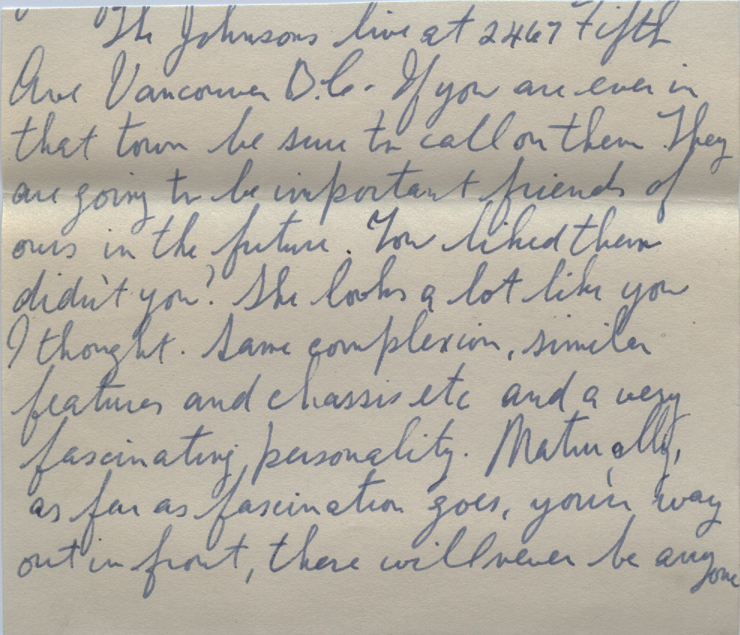 The Johnsons live at 2467 Fifth
Ave Vancouver B.C. If you are ever in
that town be sure to call on them. They
are going to be important friends of
ours in the future. You liked them
didn't you? She looks a lot like you
I thought. Same complexion, similar
features and chassis etc and a very
fascinating personality. Naturally,
as far as fascination goes, you're way
out in front, there will never be anyone